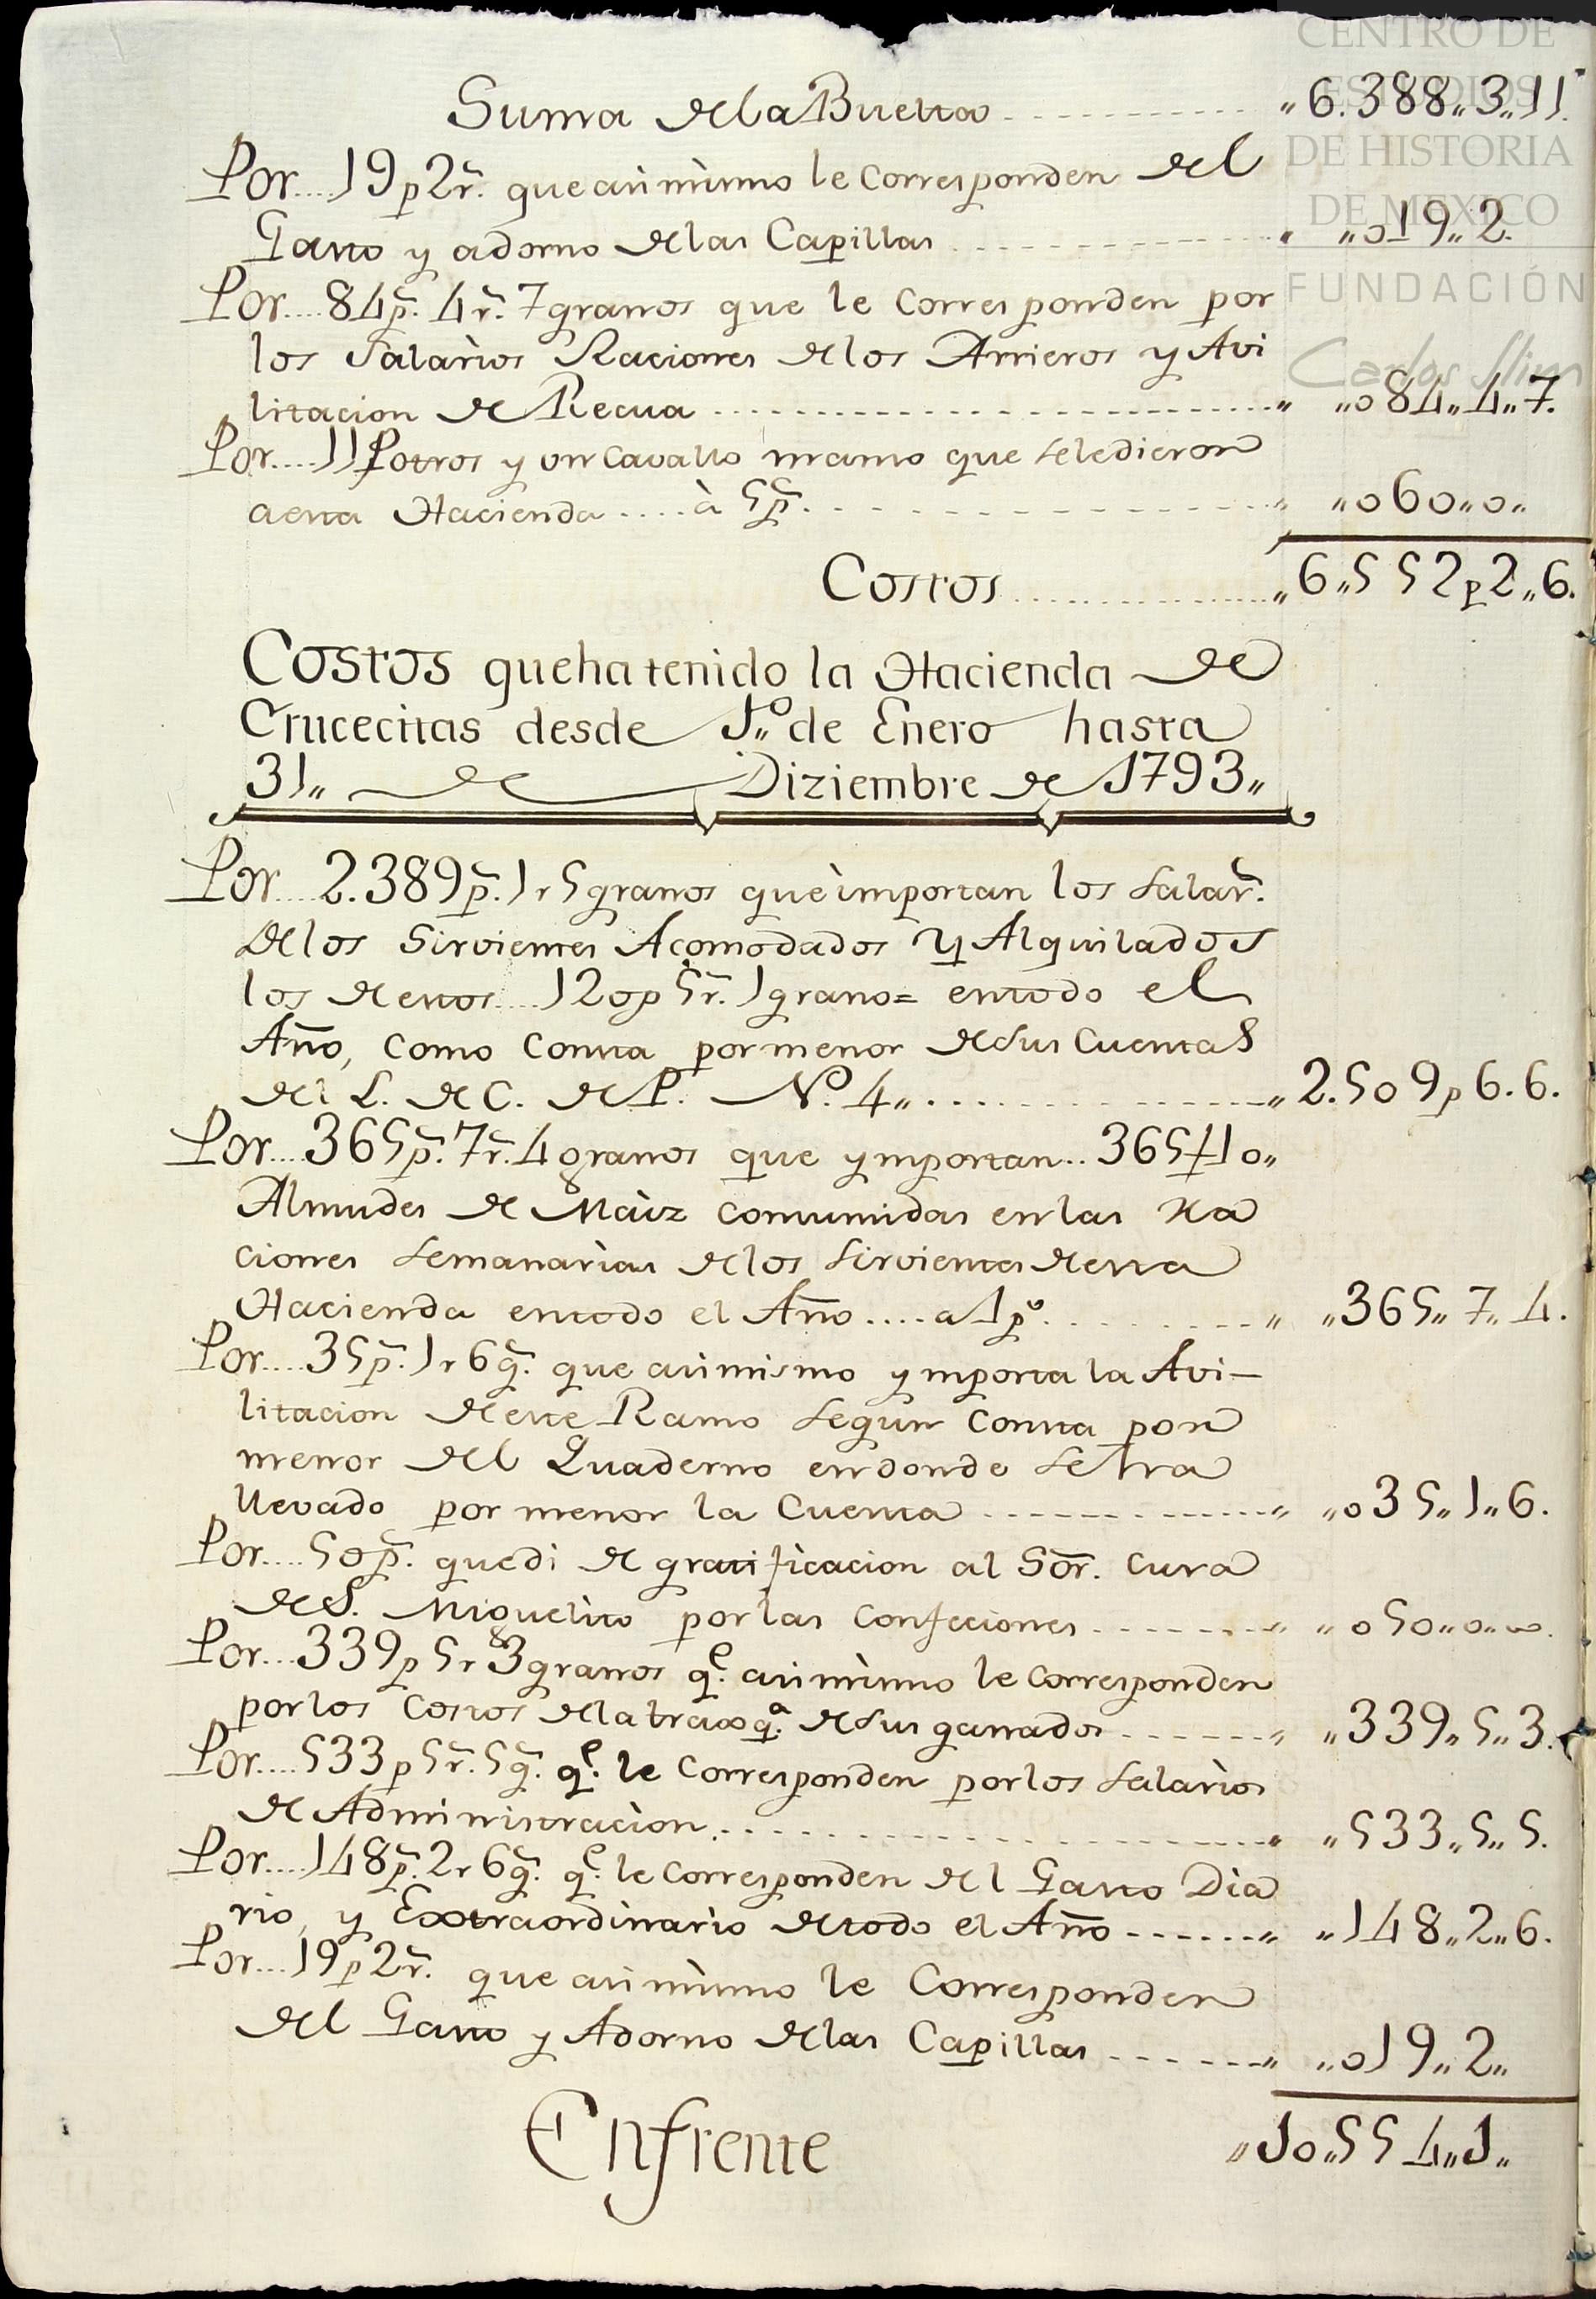 CENTRO DE
ESTUDIOS
DE HISTORIA
DE MEXICO
FUNDACIÓN
Carlos Slim
Suma de la Buelta ........ „6.388„3„11.
Por....19p2r̃. que asimismo le corresponden del
Gasto y adorno de las Capillas ........ „ „019„2.
Por....84p̃. 4r̃. 7granos que le corresponden por
los Salarios Raciones de los Arrieros y Avi
litacion de Recua ........ „ „084„4„7.
Por....11 Potros y un Cavallo manso que se le dieron
a esta Hacienda ....à 5p̃. ........ „ „060„0„
Costos ........ „6„552p2„6.
Costos que ha tenido la Hacienda de
Crucecitas desde 1„º de Enero hasta
31„ de Diziembre de 1793„
Por....2.389p̃.1r5granos que importan los Salar̃.
de los Sirvientes Acomodados y Alquilados
los de estos....120p5r̃.1grano= en todo el
Año, como consta por menor de sus Cuentas
del L. de C. de P. Nº. 4„ ........ „2.509p6.6.
Por....365p̃.7r̃.4granos que ymportan..365ƒ10„
Almudes de Maiz consumidas en las Ra
ciones Semanarias de los Sirvientes de esta
Hacienda en todo el Año....a 1pº. ........ „ „365„7„4.
Por....35p̃.1r6g̃. que asimismo ymporta la Avi–
litacion de este Ramo segun consta por
menor del Quaderno en donde se ha
llevado por menor la Cuenta ........ „ „035„1„6.
Por....50p̃. que di de gratificacion al Sõr. Cura
de S. Miguelito por las Confeciones ........ „ „050„0„0.
Por...339p5r3granos q.e asimismo le corresponden
por los Costos de la trasq.a de sus ganados ........ „ „339„5„3.
Por....533p5r̃.5g̃. q.e le Corresponden por los Salarios
de Administracion ........ „ „533„5„5.
Por....148p̃.2r6g̃. q.e le Corresponden del Gasto Dia
rio, y Extraordinario de todo el Año ........ „ „148„2„6.
Por...19p2r̃. que asimismo le Corresponden
del Gasto y Adorno de las Capillas ........ „ „019„2„
Enfrente „10„554„1„